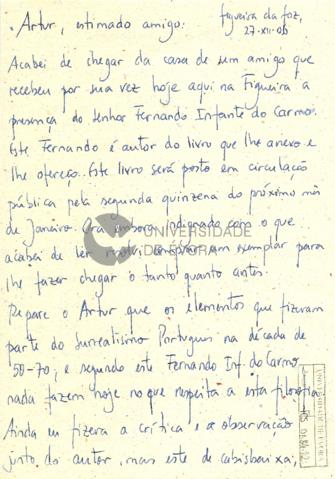 . Artur, estimado amigo:
Figueira da Foz,
27-XII-06
Acabei de chegar da casa de um amigo que
recebeu por sua vez hoje aqui na Figueira a
presença do senhor Fernando Infante do Carmo.
Este Fernando é autor do livro que lhe anexo e
lhe ofereço. Este livro será posto em circulação
pública pela segunda quinzena do próximo mês
de Janeiro. Ora indignado com o que
acabei de ler comprar um exemplar para
lhe fazer chegar o tanto quanto antes.
Repare o Artur que os elementos que fizeram
parte do Surrealismo Português na década de
50-70, e segundo este Fernando Inf. do Carmo
nada fazem hoje no que respeita a esta filosofia
Ainda eu fizera a crítica e a observação
junto do autor, mas este de cabisbaixa,
UNIVERSIDADE
DE ÉVORA
UNIVERSIDADE DE ÉVORA